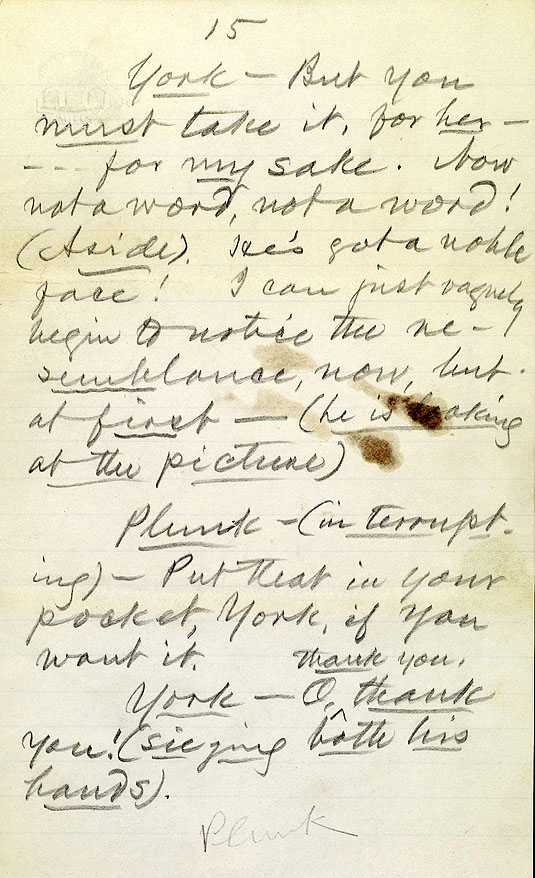 15
York — But you
must take it, for her —
--- for my sake. Now
not a word, not a word!
(Aside). He's got a noble
face! I can just vaguely
begin to notice the re-
semblance, now, but
at first — (he is looking
at the picture)
Plunk — (interrupt-
ing) — Put that in your
pocket, York, if you
want it. thank you.
York — O, thank
you! (siezing both his
hands).
Plunk